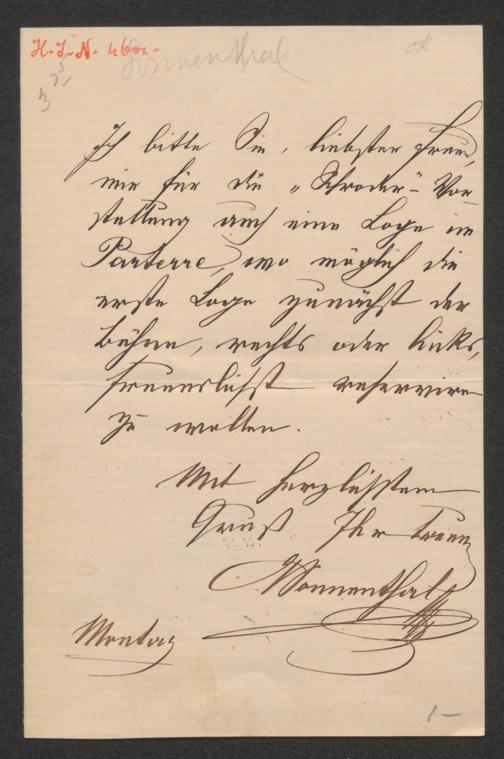 H. I. N. 4600.
Sonnenthal
Ich bitte Sie, liebster Freund,
mir für die „Schroder"- Vor
stellung auch eine Loge im
Parterre, wo möglich die
erste Loge zunächst der
Bühne, rechts oder links,
freundlichst reserviren
zu wollen.
Mit herzlichstem
Gruß Ihr treuer
Sonnenthal
Montag
1 —